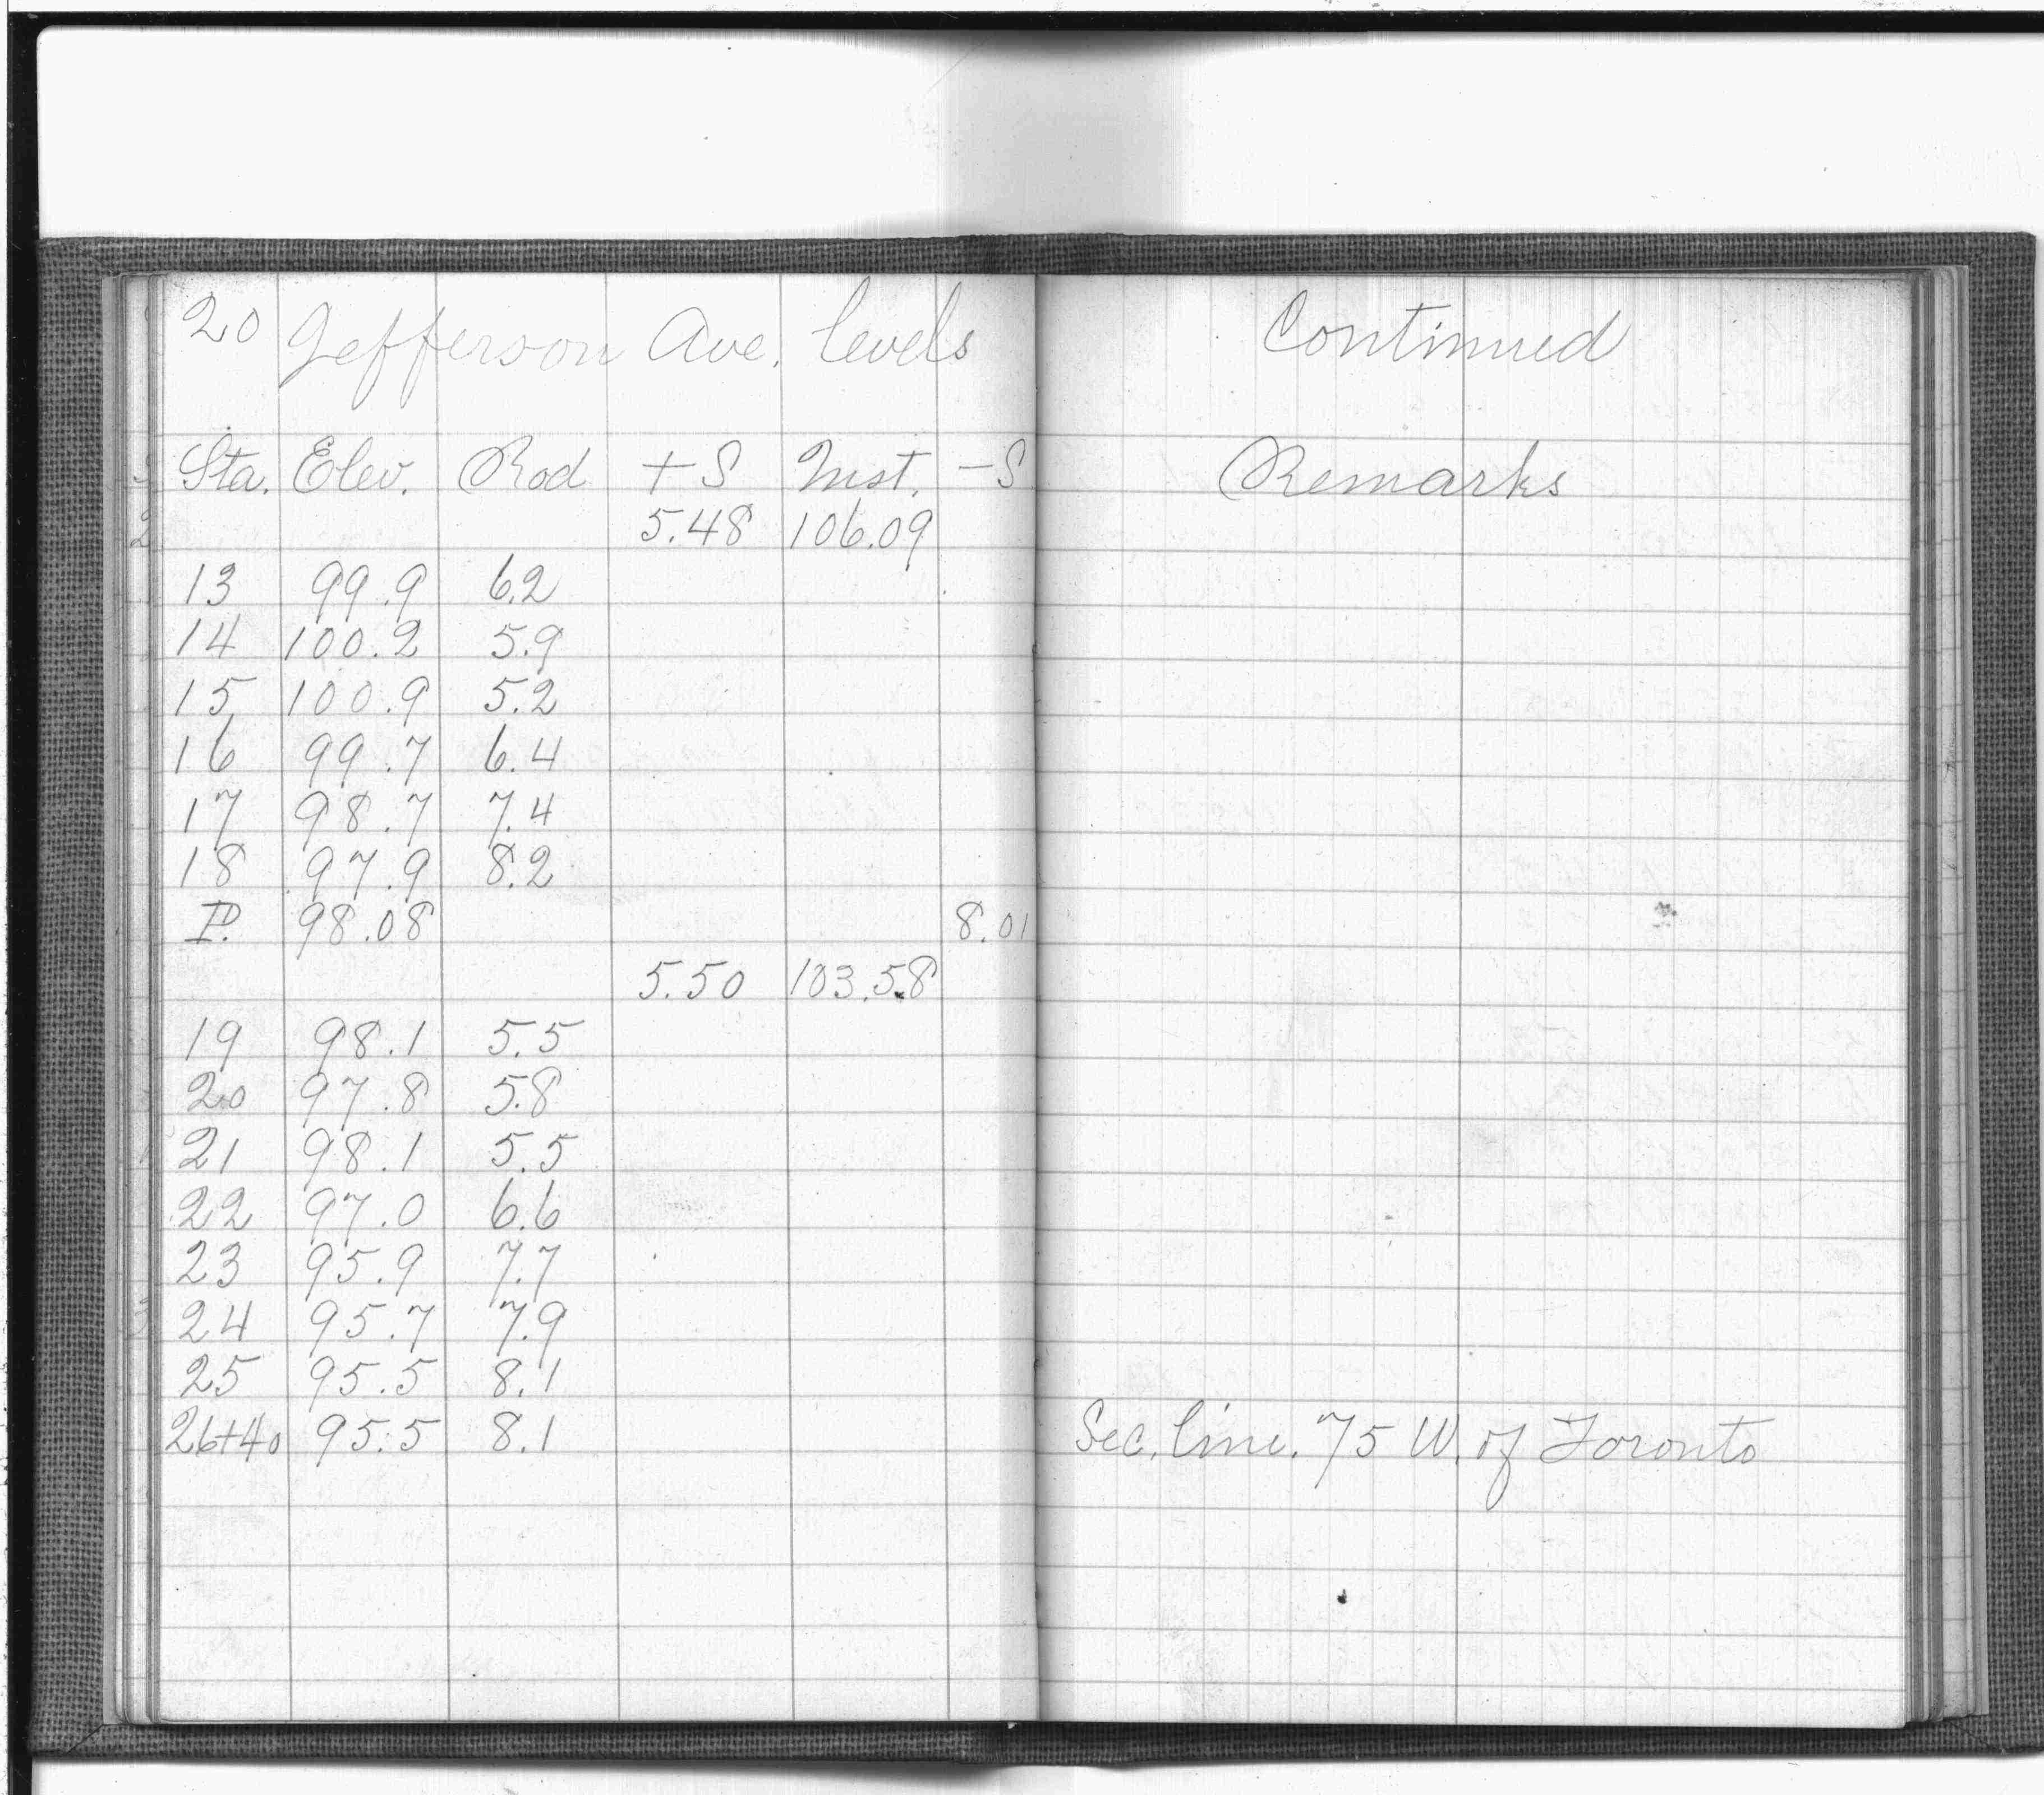 20 Jefferson Ave. levels Continued
Sta. Elev. Rod + S Inst. - S Remarks
5.48 106.09
13 99.9 6.2
14 100.2 5.9
15 100.9 5.2
16 99.7 6.4
17 98.7 7.4
18 97.9 8.2
P. 98.08 8.01
5.50 103.58
19 98.1 5.5
20 97.8 5.8
21 98.1 5.5
22 97.0 6.6
23 95.9 7.7
24 95.7 7.9
25 95.5 8.1
26+40 95.5 8.1 Sec. line. 75 W. of Toronto